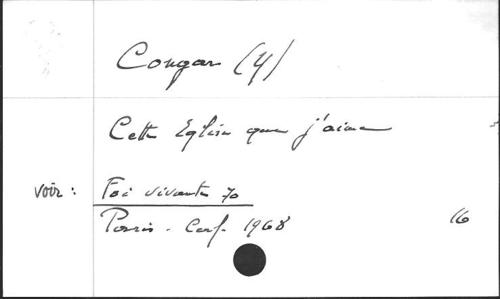 Congar (Y)
Cette Eglise que j'aime
voir : Foi vivante 70
Paris - Cerf - 1968
16